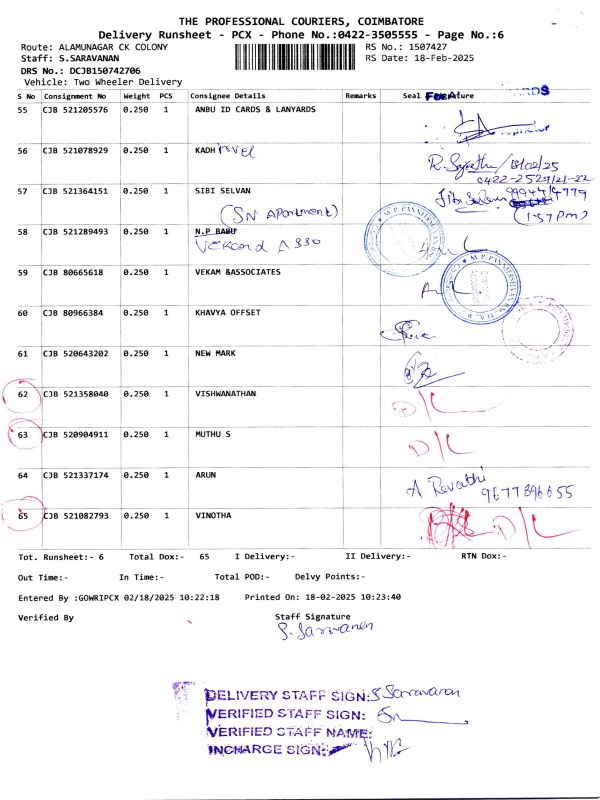 THE PROFESSIONAL COURIERS, COIMBATORE
Delivery Runsheet - PCX - Phone No.:0422-3505555 - Page No.:6
Route: ALAMUNAGAR CK COLONY RS No.: 1507427
Staff: S.SARAVANAN RS Date: 18-Feb-2025
DRS No.: DCJB150742706
Vehicle: Two Wheeler Delivery
S No Consignment No Weight PCS Consignee Details Remarks Seal
55 CJB 521205576 0.250 1 ANBU ID CARDS & LANYARDS
56 CJB 521078929 0.250 1 KADH
18/02/25
57 CJB 521364151 0.250 1 SIBI SELVAN
(SN Apartment) (1:57pm)
58 CJB 521289493 0.250 1 N.P BABU
59 CJB 80665618 0.250 1 VEKAM &ASSOCIATES
60 CJB 80966384 0.250 1 KHAVYA OFFSET
61 CJB 520643202 0.250 1 NEW MARK
62 CJB 521358040 0.250 1 VISHWANATHAN D/L
63 CJB 520904911 0.250 1 MUTHU S D/L
64 CJB 521337174 0.250 1 ARUN A Revathi
9677896655
65 CJB 521082793 0.250 1 VINOTHA D/L
Tot. Runsheet:- 6 Total Dox:- 65 I Delivery:- II Delivery:- RTN Dox:-
Out Time:- In Time:- Total POD:- Delvy Points:-
Entered By :GOWRIPCX 02/18/2025 10:22:18 Printed On: 18-02-2025 10:23:40
Verified By Staff Signature
S. Saravanan
DELIVERY STAFF SIGN: S Saravanan
VERIFIED STAFF SIGN:
VERIFIED STAFF NAME:
INCHARGE SIGN: